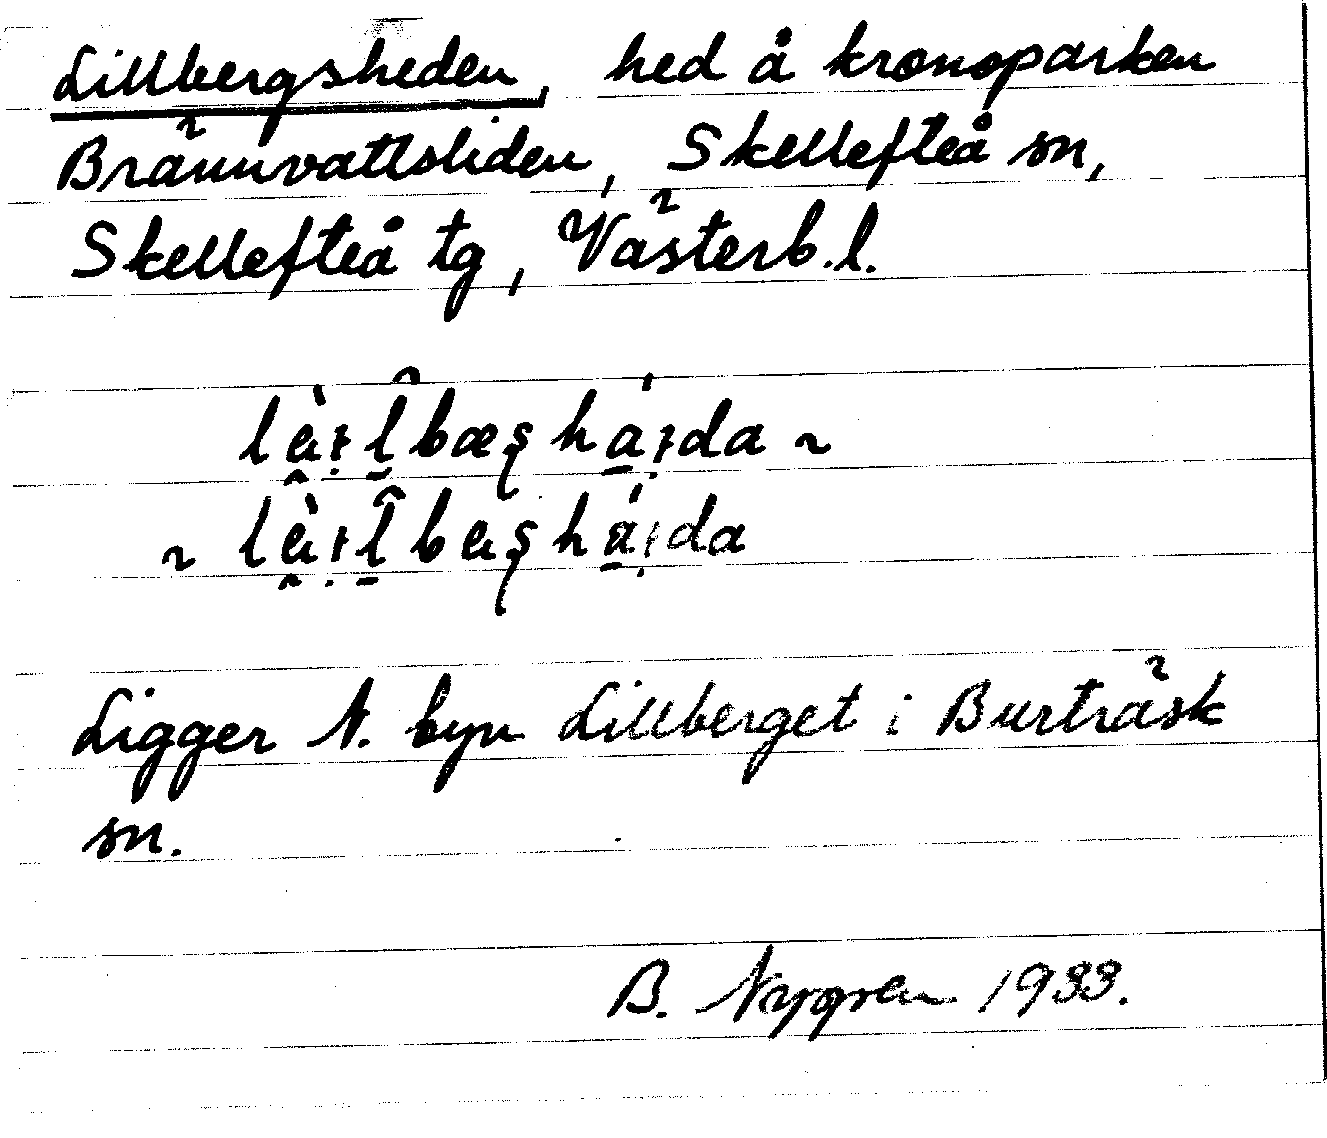 Lillbergsheden, hed å kronoparken
Brännvattsliden, Skellefteå sn,
Skellefteå tg, Västerb.l.
Ligger N. byn Lillberget i Burträsk
sn.
B. Nygren 1933.